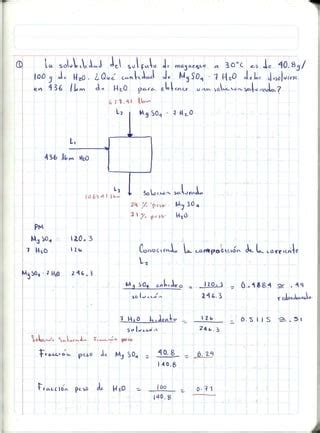 ① La solubilidad del sulfato de magnesio a 30°C es de 40.8g/
100 g de H2O. ¿Qué cantidad de MgSO4 · 7 H2O debe disolverse
en 436 lbm de H2O para obtener una solución saturada?
L2 MgSO4 · 7 H2O
L1
436 lbm H2O
L3 Solución saturada
29 % peso MgSO4
71 % peso H2O
PM
MgSO4 120.3
7 H2O 126
MgSO4·7H2O 246.3
Conociendo la composición de la corriente
L2
MgSO4 anhidro = 120.3 = 0.4884 ≅ .49
solución 246.3 redondeando
7 H2O hidrato = 126 = 0.5115 ≅ .51
solución 246.3
Solución Saturada Fracción peso
Fracción peso de MgSO4 = 40.8 = 0.29
140.8
Fracción peso de H2O = 100 = 0.71
140.8